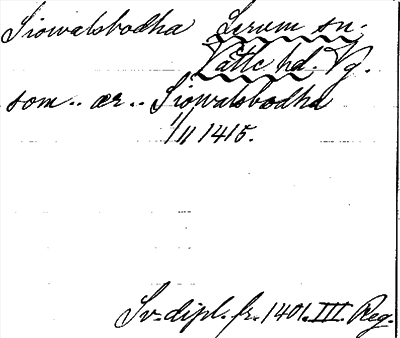 Siowalsbodha Lerum sn.
Vätte hd. Vg.
som .. ær .. Siowalsbodha
1/11 1415.
Sv. dipl. fr. 1401. III. Reg.